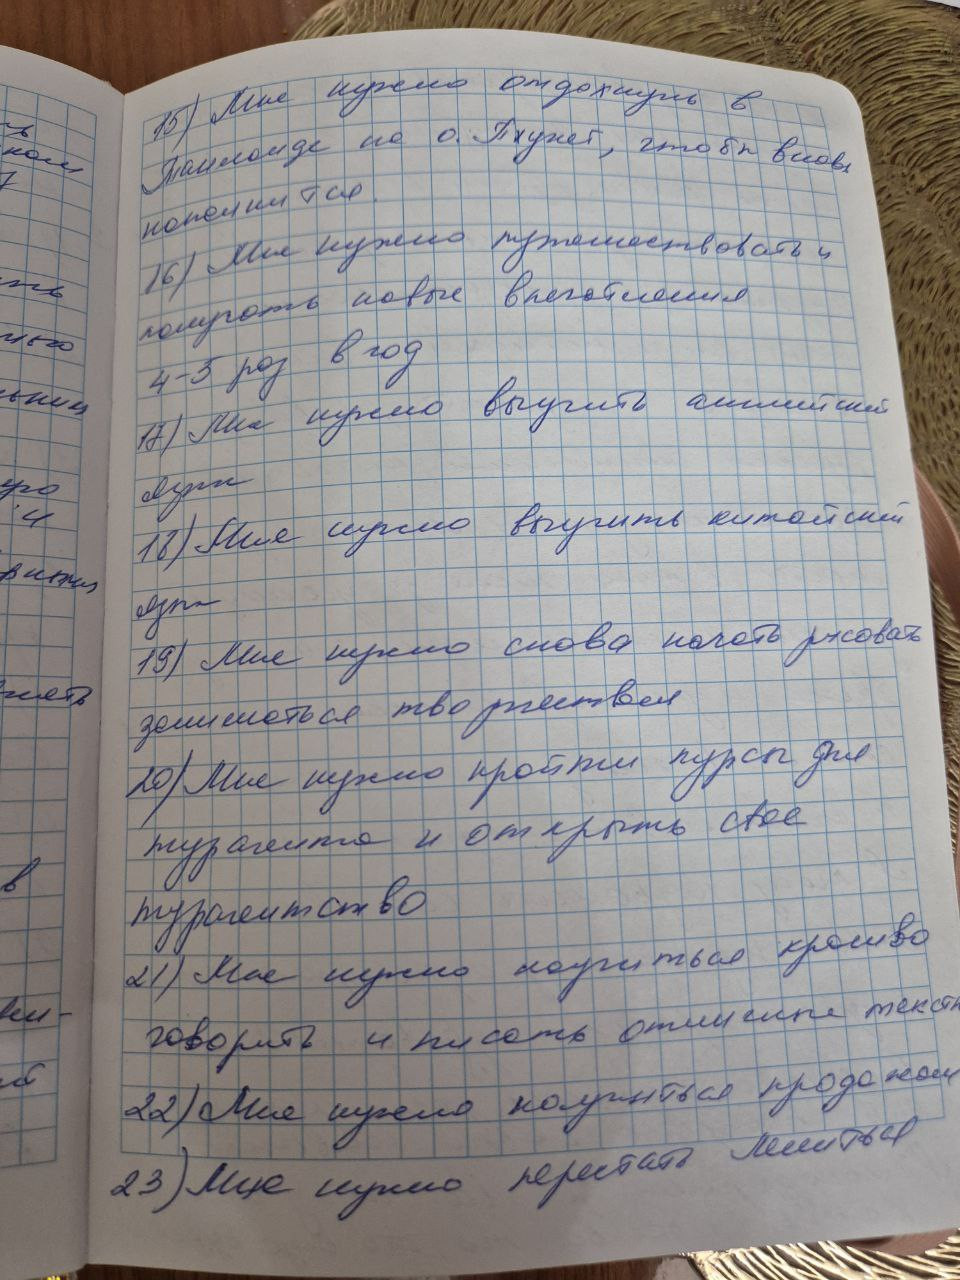 15) Мне нужно отдохнуть в
Таиланде на о. Пхукет, чтобы вновь
наполнится.
16) Мне нужно путешествовать и
получать новые впечатления
4-5 раз в год
17) Мне нужно выучить английский
язык
18) Мне нужно выучить китайский
язык
19) Мне нужно снова начать рисовать
заниматься творчеством
20) Мне нужно пройти курсы для
турагента и открыть свое
турагентство
21) Мне нужно научиться красиво
говорить и писать отличные тексты
22) Мне нужно научиться продажам
23) Мне нужно перестать лениться